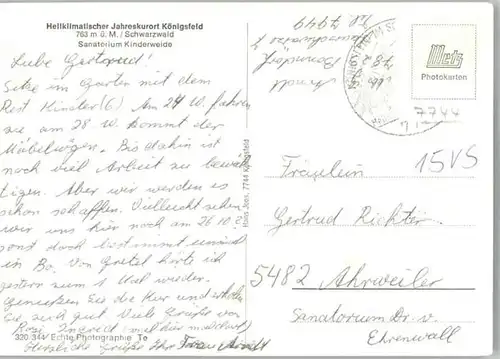 Heilklimatischer Jahreskurort Königsfeld
763 m ü. M. / Schwarzwald
Sanatorium Kinderweide
Liebe Gertraud!
Sitze im Garten mit dem
Rest Kinder (6) Am 24 10. fahren
sie am 28 10. kommt der
Möbelwagen. Bis dahin ist
noch viel Arbeit zu bewäl
tigen. Aber wir werden es
schon schaffen. Vielleicht sehen
wir uns hier noch am 26.10.?
sonst doch bestimmt einmal
in Bo. Von Gretel hörte ich
gestern zum 1 Mal wieder.
Genießen Sie die Kur und erholen
Sie sich gut. Viele Grüße von
Rosi Ingrid
Herzliche Grüße Ihr Frau Arndt
320 344 Echte Photographie Te
Hans Jess, 7744 Königsfeld
Arndt
Bonndorf
Tel 7949
Metz
Photokarten
7744
15VS
Fräulein
Gertrud Richter
5482 Ahrweiler
Sanatorium Dr. v.
Ehrenwall